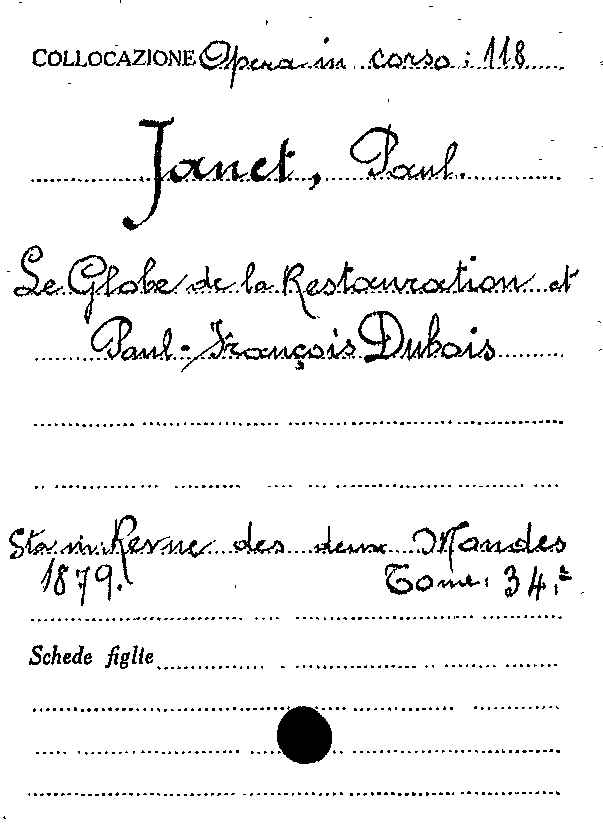 COLLOCAZIONE Opera in corso: 118
Janet, Paul.
Le Globe de la Restauration et
Paul-François Dubois
Sta in: Revue des deux Mondes
1879. Tome. 34.e
Schede figlie